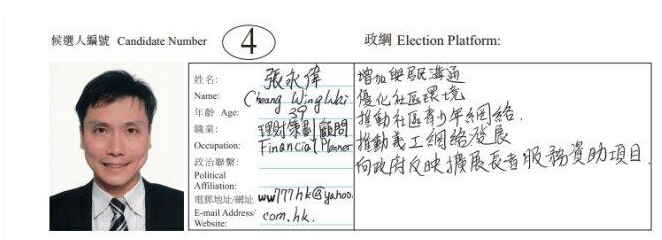 候選人編號 Candidate Number 4 政綱 Election Platform:
姓名: 張永偉
Name: Cheung Wing Wai
年齡 Age: 39
職業: 理財策劃顧問
Occupation: Financial Planner
政治聯繫:
Political
Affiliation:
電郵地址/網址 ww777hk@yahoo.
E-mail Address/ com.hk.
Website:
增加與居民溝通
優化社區環境
推動社區青少年網絡.
推動義工網絡發展
向政府反映擴展長者服務資助項目.